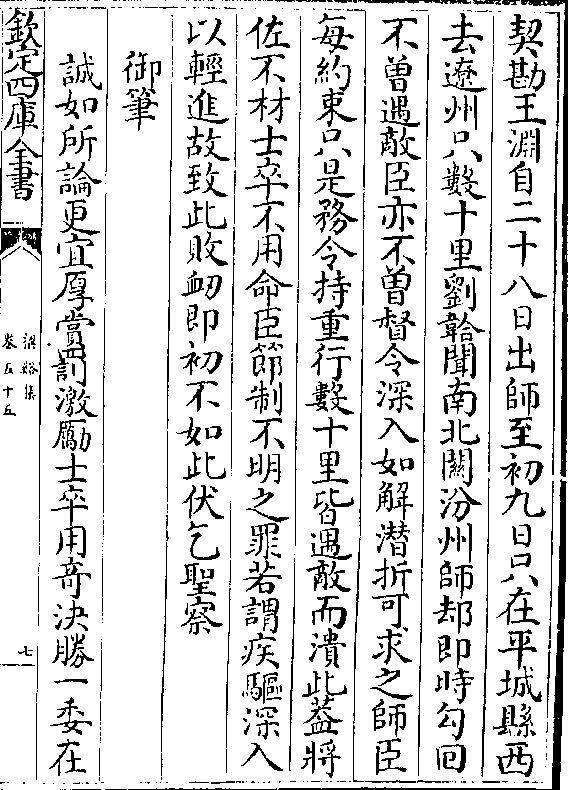 契勘王淵自二十八日出師至初九日只在平城縣西
去遼州只數十里劉韐聞南北關汾州師却即時勾回
不曾遇敵臣亦不曾督令深入如解潛折可求之師臣
每約束只是務令持重行數十里皆遇敵而潰此蓋將
佐不材士卒不用命臣節制不明之罪若謂疾驅深入
以輕進故致此敗衂即初不如此伏乞聖察
御筆
誠如所論更宜厚賞罰激勵士卒用奇決勝一委在
欽定四庫全書
梁谿集
卷五十五
七